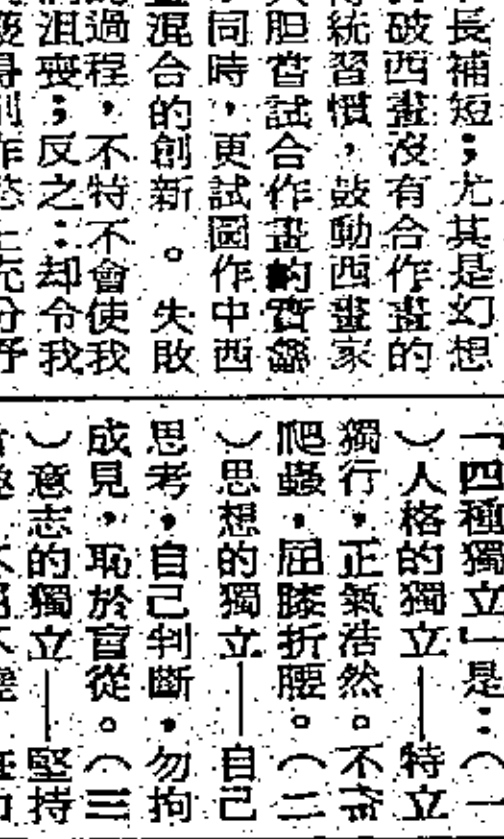 長補短；尤其是幻想
破西畫沒有合作畫的
統習慣，鼓動西畫家
胆嘗試合作畫的
同時，更試圖作中西
混合的創新。失敗
過程，不特不會使我
沮喪；反之：却令我
「四種獨立」是：（一
）人格的獨立——特立
獨行，正氣浩然。不
爬蟲，屈膝折腰。（二
）思想的獨立——自己
思考，自己判斷。勿拘
成見，恥於盲從。（三
）意志的獨立——堅持